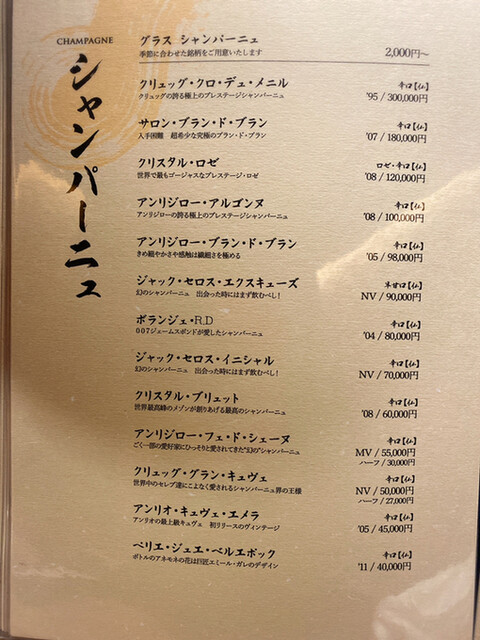 CHAMPAGNE
シャンパーニュ
グラス シャンパーニュ
季節に合わせた銘柄をご用意いたします
2,000円～
クリュッグ・クロ・デュ・メニル
辛口【仏】
クリュッグの誇る極上のプレステージシャンパーニュ
'95 / 300,000円
サロン・ブラン・ド・ブラン
辛口【仏】
入手困難 超希少な究極のブラン・ド・ブラン
'07 / 180,000円
クリスタル・ロゼ
ロゼ・辛口【仏】
世界で最もゴージャスなプレステージ・ロゼ
'08 / 120,000円
アンリジロー・アルゴンヌ
辛口【仏】
アンリジローの誇る極上のプレステージシャンパーニュ
'08 / 100,000円
アンリジロー・ブラン・ド・ブラン
辛口【仏】
きめ細やかさや感触は繊細さを極める
'05 / 98,000円
ジャック・セロス・エクスキューズ
半甘口【仏】
幻のシャンパーニュ 出会った時にはまず飲むべし!
NV / 90,000円
ボランジェ・R.D
辛口【仏】
007ジェームスボンドが愛したシャンパーニュ
'04 / 80,000円
ジャック・セロス・イニシャル
辛口【仏】
幻のシャンパーニュ 出会った時にはまず飲むべし!
NV / 70,000円
クリスタル・ブリュット
辛口【仏】
世界最高峰のメゾンが創りあげる最高のシャンパーニュ
'08 / 60,000円
アンリジロー・フュ・ド・シェーヌ
辛口【仏】
ごく一部の愛好家にひっそりと愛されてきた"幻の"シャンパーニュ
MV / 55,000円
ハーフ / 30,000円
クリュッグ・グラン・キュヴェ
辛口【仏】
世界中のセレブ達にこよなく愛されるシャンパーニュ界の王様
NV / 50,000円
ハーフ / 27,000円
アンリオ・キュヴェ・エメラ
辛口【仏】
アンリオの最上級キュヴェ 初リリースのヴィンテージ
'05 / 45,000円
ペリエ・ジュエ・ベルエポック
辛口【仏】
ボトルのアネモネの花は巨匠エミール・ガレのデザイン
'11 / 40,000円